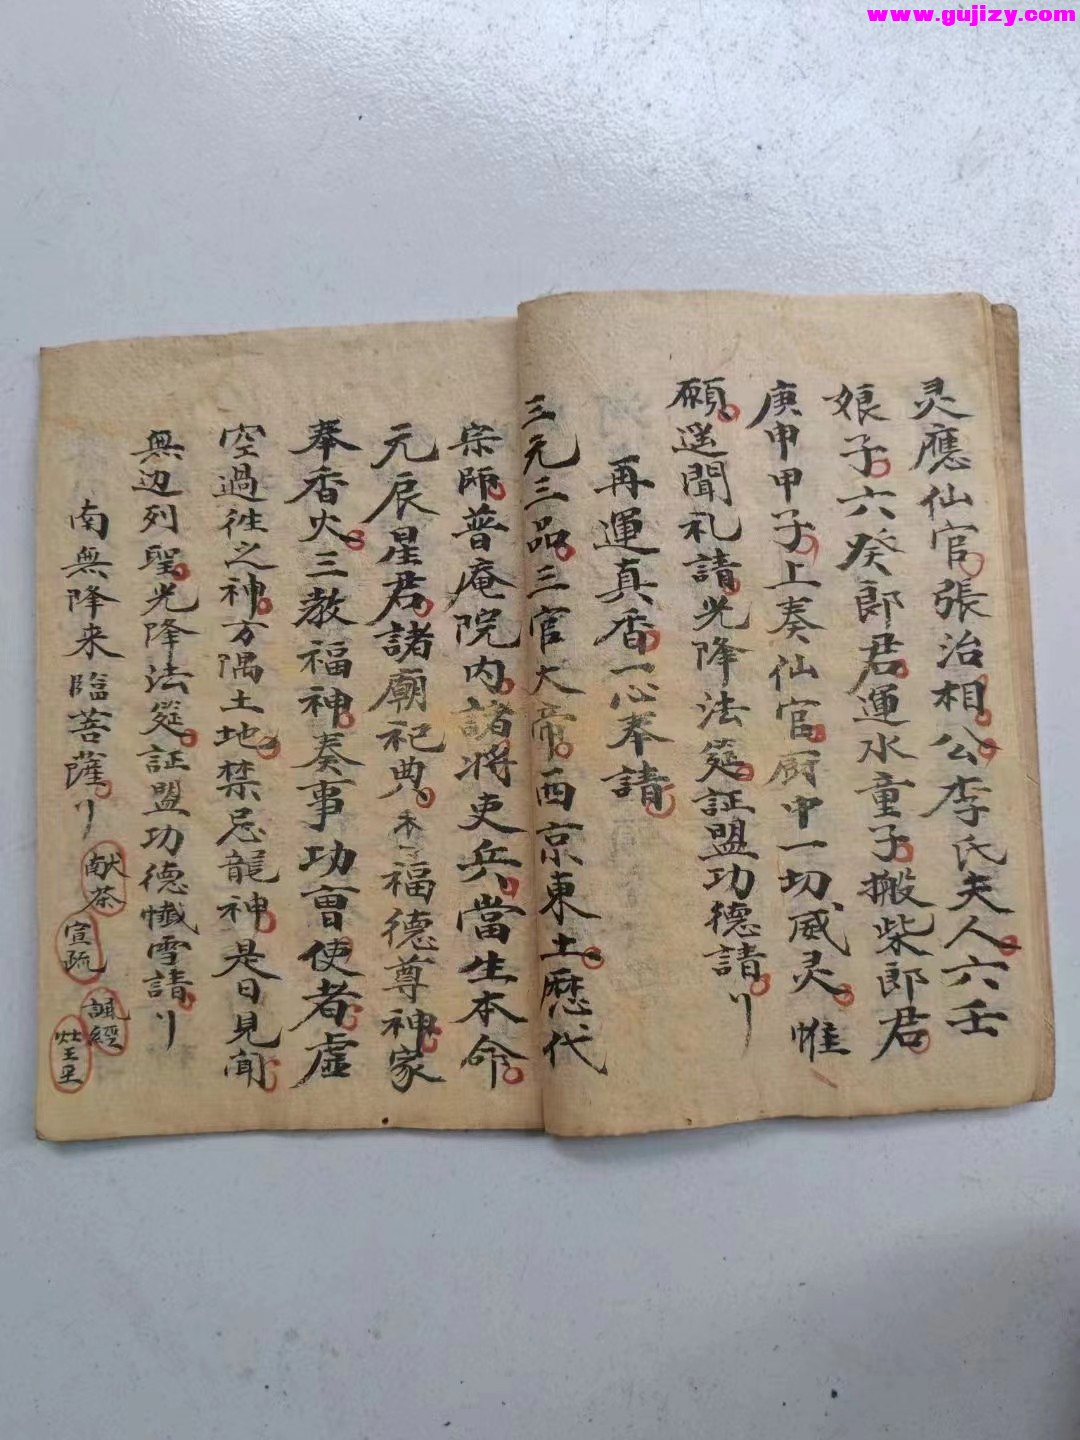 www.gujizy.com
灵應仙官張治相公李氏夫人六壬
娘子六癸郎君運水童子搬柴郎君
庚申甲子上奏仙官厨中一切威灵惟
願遥聞礼請光降法筵証盟功德請〢
再運真香一心奉請
三元三品三官大帝西京東土歷代
宗師普庵院内諸將吏兵當生本命
元辰星君諸廟祀典本福德尊神家
奉香火三教福神奏事功曹使者虛
空過徃之神方隅土地禁忌龍神是日見聞
無边列聖光降法筵証盟功德懺雪請〢
南無降来臨菩薩〢
献茶
宣疏
諷經
灶王